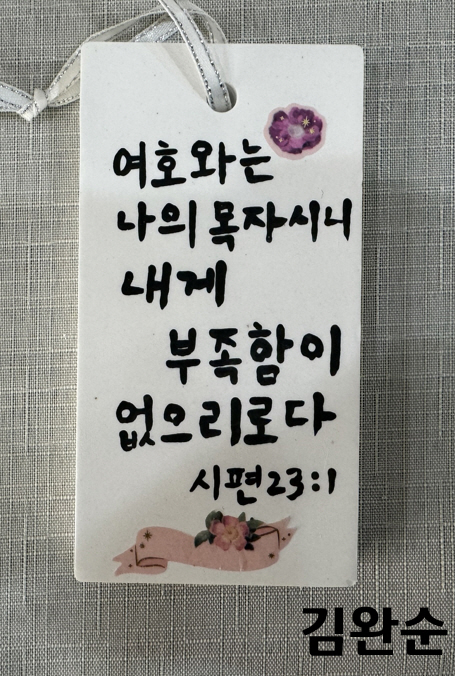 여호와는
나의 목자시니
내게
부족함이
없으리로다
시편23:1
김완순